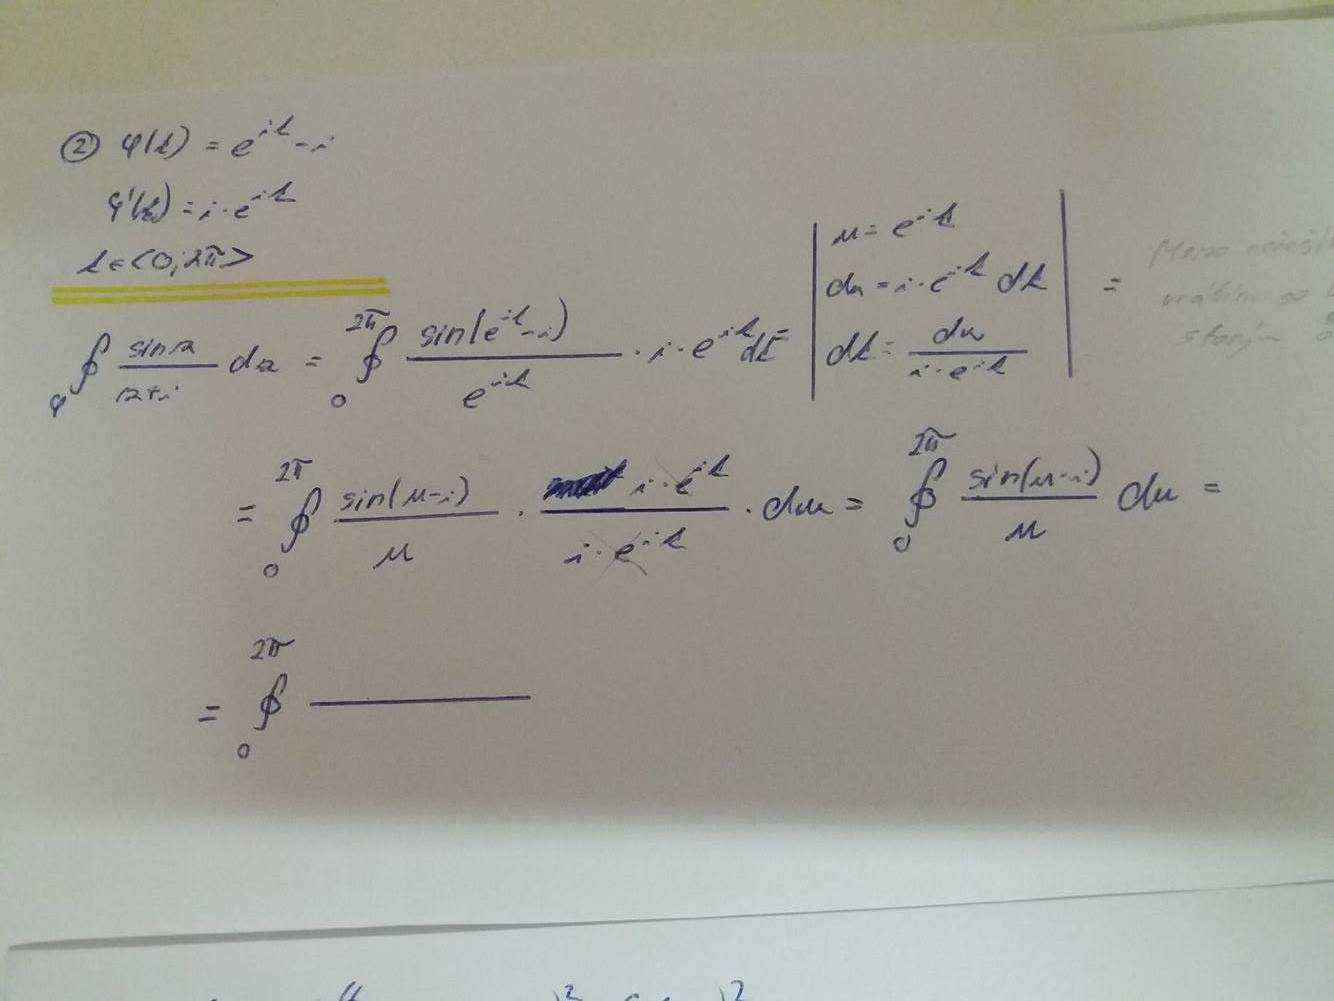 ② φ(t) = e^{it} - i
φ'(t) = i · e^{it}
t ∈ <0; 2π>
∮_φ \frac{sin z}{z+i} dz = ∮_0^{2π} \frac{sin(e^{it}-i)}{e^{it}} · i · e^{it} dt = | u = e^{it} | =
| du = i · e^{it} dt |
| dt = \frac{du}{i · e^{it}} |
= ∮_0^{2π} \frac{sin(u-i)}{u} · \frac{i · e^{it}}{i · e^{it}} · du = ∮_0^{2π} \frac{sin(u-i)}{u} du =
= ∮_0^{2π}